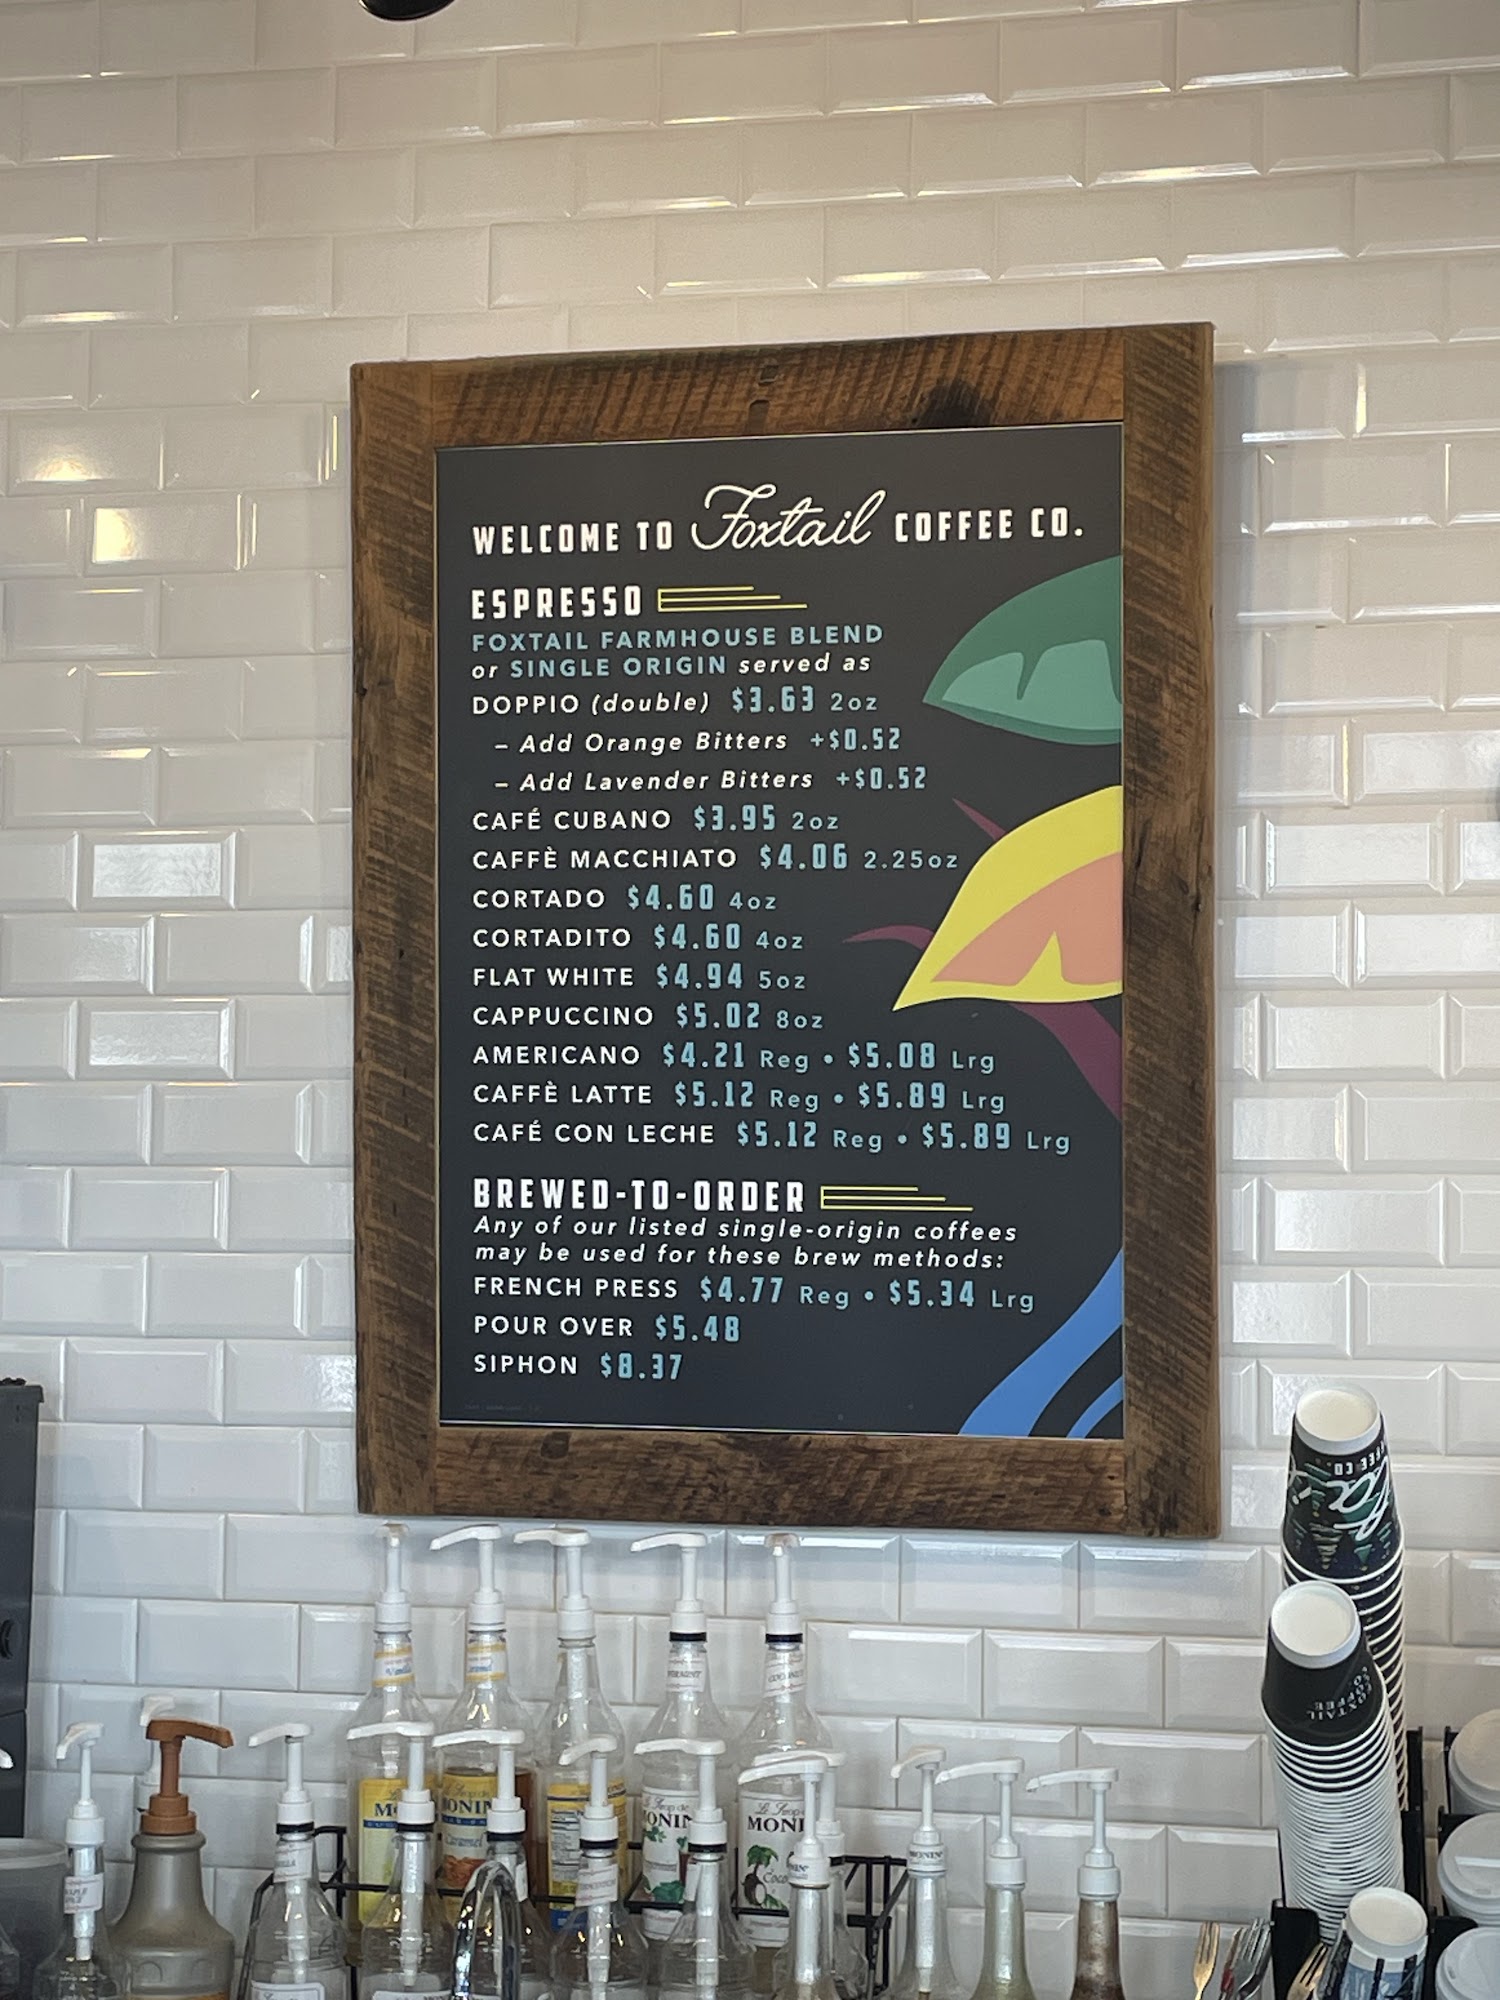 WELCOME TO Foxtail COFFEE CO.
ESPRESSO
FOXTAIL FARMHOUSE BLEND
or SINGLE ORIGIN served as
DOPPIO (double) $3.63 2oz
– Add Orange Bitters +$0.52
– Add Lavender Bitters +$0.52
CAFÉ CUBANO $3.95 2oz
CAFFÈ MACCHIATO $4.06 2.25oz
CORTADO $4.60 4oz
CORTADITO $4.60 4oz
FLAT WHITE $4.94 5oz
CAPPUCCINO $5.02 8oz
AMERICANO $4.21 Reg • $5.08 Lrg
CAFFÈ LATTE $5.12 Reg • $5.89 Lrg
CAFÉ CON LECHE $5.12 Reg • $5.89 Lrg
BREWED-TO-ORDER
Any of our listed single-origin coffees
may be used for these brew methods:
FRENCH PRESS $4.77 Reg • $5.34 Lrg
POUR OVER $5.48
SIPHON $8.37
FOXTAIL
COFFEE
Vanilla
Caramel
MONIN